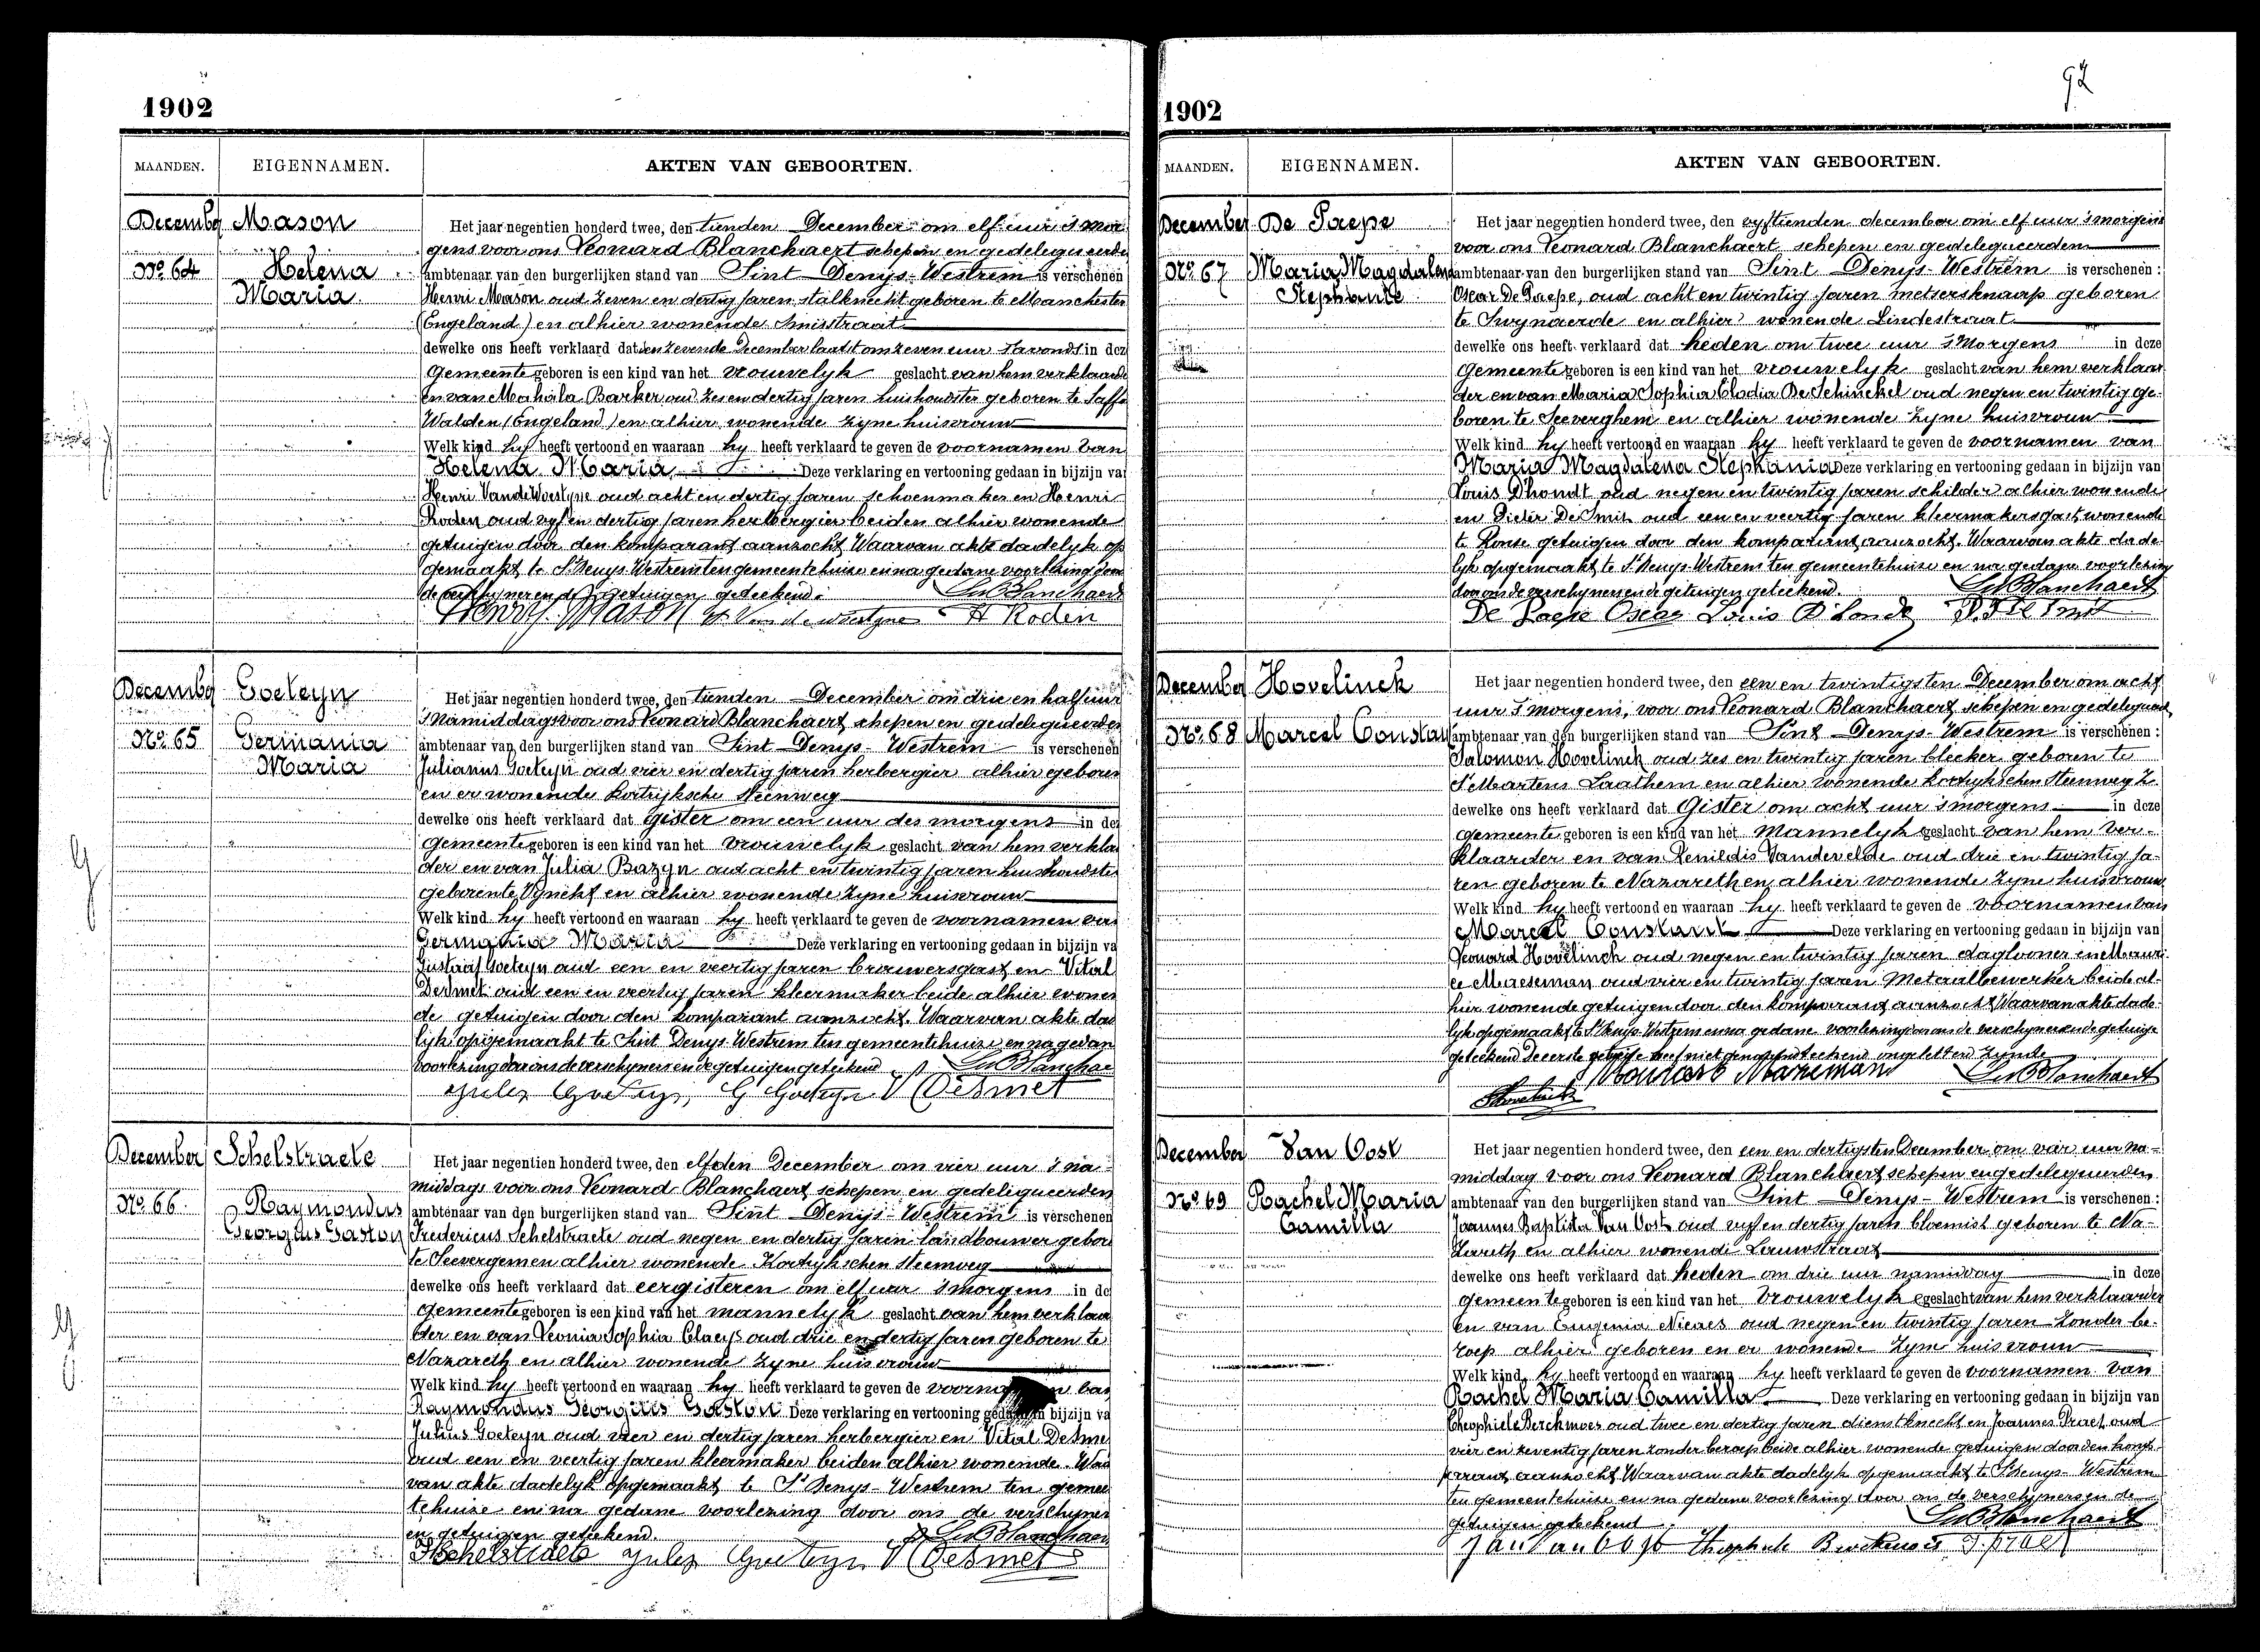 1902
MAANDEN. EIGENNAMEN. AKTEN VAN GEBOORTEN.
December Mason
No 64 Helena
Maria
Het jaar negentien honderd twee, den tienden December om elf uur 's mor
gens voor ons Leonard Blanchaert schepen en gedelegueerde
ambtenaar van den burgerlijken stand van Sint Denijs-Westrem is verschenen
Henri Mason oud zeven en dertig jaren stalknecht geboren te Manchester
(Engeland) en alhier wonende
dewelke ons heeft verklaard dat den zevende December laatst om zeven uur 's avonds in dez
gemeente geboren is een kind van het vrouwelyk geslacht van hem verklaarde
en van Mahala Barker oud zes en dertig jaren huishoudster geboren te Saffe
Walden (Engeland) en alhier wonende zyne huisvrouw
Welk kind hy heeft vertoond en waaraan hy heeft verklaard te geven de voornamen van
Helena Maria Deze verklaring en vertooning gedaan in bijzijn va
Henri VandeWoestyne oud acht en dertig jaren schoenmaker en Henri
Roden oud vyf en dertig jaren herbergier beiden alhier wonende
getuigen door den komparant aanzocht Waarvan akte dadelyk op
gemaakt te St Denys Westrem ten gemeentehuize en na gedane voorlezing door
de verschyner en de getuigen geteekend. Ld Blanchaert
Henry Mason H Van de woestyne H Roden
December Goeteyn
No 65 Germania
Maria
Het jaar negentien honderd twee, den tienden December om drie en half uur
's namiddags voor ons Leonard Blanchaert schepen en gedelegueerden
ambtenaar van den burgerlijken stand van Sint Denys-Westrem is verschenen
Julianus Goeteyn oud vier en dertig jaren herbergier alhier geboren
en er wonende Kortrijksche steenweg
dewelke ons heeft verklaard dat gister om een uur des morgens in dez
gemeente geboren is een kind van het vrouwelyk geslacht van hem verklaa
der en van Julia Bazyn oud acht en twintig jaren huishoudster
geboren te Vynckt en alhier wonende zyne huisvrouw
Welk kind hy heeft vertoond en waaraan hy heeft verklaard te geven de voornamen van
Germania Maria Deze verklaring en vertooning gedaan in bijzijn va
Gustaaf Goeteyn oud een en veertig jaren brouwersgast en Vital
Desmet oud een en veertig jaren kleermaker beide alhier wonen
de getuigen door den komparant aanzocht. Waarvan akte dad
lyk opgemaakt te Sint Denys Westrem ten gemeentehuize en na gedan
voorlezing door ons de verschyner en de getuigen geteekend Ld Blanchae
Jules Goeteyn, G Goeteyn V Desmet
December Schelstraete
No 66. Raymondus
Georgius Gaston
Het jaar negentien honderd twee, den elfden December om vier uur 's na
middags voor ons Leonard Blanchaert schepen en gedelegueerden
ambtenaar van den burgerlijken stand van Sint Denijs-Westrem is verschenen
Fredericus Schelstraete oud negen en dertig jaren landbouwer gebore
te Seevergem en alhier wonende Kortrykschen steenweg
dewelke ons heeft verklaard dat eergisteren om elf uur 's morgens in de
gemeente geboren is een kind van het mannelyk geslacht van hem verklaa
der en van Leonia Sophia Claeys oud drie en dertig jaren geboren te
Nazareth en alhier wonende zyne huisvrouw
Welk kind hy heeft vertoond en waaraan hy heeft verklaard te geven de voorna n van
Raymondus Georgius Gaston Deze verklaring en vertooning gedaan in bijzijn va
Julius Goeteyn oud vier en dertig jaren herbergier en Vital Desme
oud een en veertig jaren kleermaker beiden alhier wonende. Waar
van akte dadelyk opgemaakt te St Denys-Westrem ten gemeen
tehuize en na gedane voorlezing door ons de verschyner
en getuigen geteekend. Ld Blanchaert
F Schelstraete Jules Goeteyn V Desmet
92
1902
MAANDEN. EIGENNAMEN. AKTEN VAN GEBOORTEN.
December De Paepe
No 67 Maria Magdalena
Stephanie
Het jaar negentien honderd twee, den vyftienden december om elf uur 's morgens
voor ons Leonard Blanchaert schepen en gedelegueerden
ambtenaar van den burgerlijken stand van Sint Denys-Westrem is verschenen:
Oscar De Paepe, oud acht en twintig jaren metsersknaap geboren
te Swynaerde en alhier wonende Lindestraat
dewelke ons heeft verklaard dat heden om twee uur 's Morgens in deze
gemeente geboren is een kind van het vrouwelyk geslacht van hem verklaar
der en van Maria Sophia Clodia De Schinckel oud negen en twintig ge-
boren te Seeverghem en alhier wonende zyne huisvrouw
Welk kind hy heeft vertoond en waaraan hy heeft verklaard te geven de voornamen van
Maria Magdalena Stephania Deze verklaring en vertooning gedaan in bijzijn van
Louis D'hondt oud negen en twintig jaren schilder alhier wonende
en Pieter De Smit oud een en veertig jaren kleermakersgast wonende
te Ronse getuigen door den komparant aanzocht. Waarvan akte dade
lyk opgemaakt te St Denys Westrem ten gemeentehuize en na gedane voorlezing
door ons de verschyner en de getuigen geteekend. Ld Blanchaert
De Paepe Oscar Louis D'hondt P. De Smit
December Hovelinck
No 68 Marcel Constan
Het jaar negentien honderd twee, den een en twintigsten December om acht
uur 's morgens, voor ons Leonard Blanchaert schepen en gedelegueerd
ambtenaar van den burgerlijken stand van Sint Denys-Westrem is verschenen:
Salomon Hovelinck oud zes en twintig jaren bleeker geboren te
St Martens Laathem en alhier wonende kortrykschen steenweg Z
dewelke ons heeft verklaard dat Gister om acht uur 's morgens in deze
gemeente geboren is een kind van het Mannelyk geslacht van hem Ver-
klaarder en van Renildis Vandevelde oud drie en twintig ja-
ren geboren te Nazareth en alhier wonende zyne huisvrouw
Welk kind hy heeft vertoond en waaraan hy heeft verklaard te geven de voornamen van
Marcel Constant Deze verklaring en vertooning gedaan in bijzijn van
Leonard Hovelinck oud negen en twintig jaren daglooner en Mauri
ce Maeseman oud vier en twintig jaren Metaalbewerker beide al-
hier wonende getuigen door den komparant aanzocht Waarvan akte dade
lyk opgemaakt te St Denys-Westrem en na gedane voorlezing door ons de verschyner en de getuige
geteekend De eerste getuige heeft niet geteekend ongeletterd zynde
Maeseman Ld Blanchaert
December Van Oost
No 69 Rachel Maria
Camilla
Het jaar negentien honderd twee, den een en dertigsten December om vier uur na-
middag voor ons Leonard Blanchaert schepen en gedelegueerden
ambtenaar van den burgerlijken stand van Sint Denys-Westrem is verschenen:
Joannes Baptista Van Oost oud vyf en dertig jaren bloemist geboren te Na-
zareth en alhier wonende Leeuwstraat
dewelke ons heeft verklaard dat heden om drie uur namiddag in deze
gemeente geboren is een kind van het Vrouwelyk geslacht van hem verklaarder
en van Eugenia Nieves oud negen en twintig jaren zonder be-
roep alhier geboren en er wonende zyne huisvrouw
Welk kind hy heeft vertoond en waaraan hy heeft verklaard te geven de voornamen van
Rachel Maria Camilla Deze verklaring en vertooning gedaan in bijzijn van
Theophiele Berckmoes oud twee en dertig jaren dienstknecht en Joannes Praet oud
vier en zeventig jaren zonder beroep beide alhier wonende getuigen door den komp-
arant aanzocht Waarvan akte dadelyk opgemaakt te St Denys-Westrem
ten gemeentehuize en na gedane voorlezing door ons de verschyners en de
getuigen geteekend. Ld Blanchaert
Jan Van Oost Theophile Berckmoes J. praet